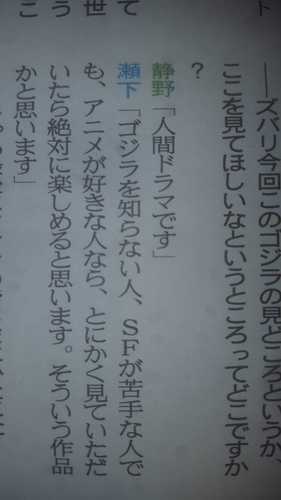 ト
て
世
う
こ
――ズバリ今回このゴジラの見どころというか、
ここを見てほしいなというところってどこですか
？
静野「人間ドラマです」
瀬下「ゴジラを知らない人、ＳＦが苦手な人で
も、アニメが好きな人なら、とにかく見ていただ
いたら絶対に楽しめると思います。そういう作品
かと思います」